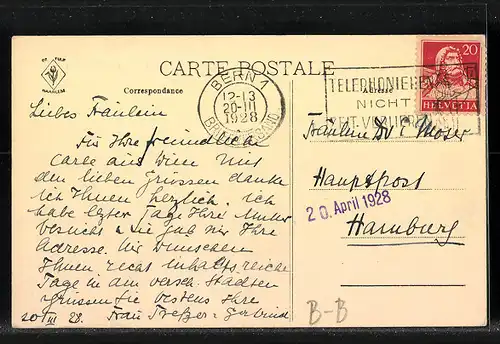 CARTE POSTALE
Correspondance
Adresse
HAARLEM
BERN 1
12-13
20. III
1928
TELEPHONIEREN
NICHT
20
HELVETIA
Liebes Fräulein
Für Ihre freundliche
Carte aus Wien mit
den lieben Grüssen danke
ich Ihnen herzlich. ich
habe letzter Tage Ihre Mutter
besucht & sie gab mir Ihre
Adresse. Wir wünschen
Ihnen recht inhaltsreiche
Tage in den versch. Städten
Grüssen Sie bestens Ihre
20/III 28. Frau
Fräulein Moser
Hauptpost
20. April 1928
Hamburg
B-B